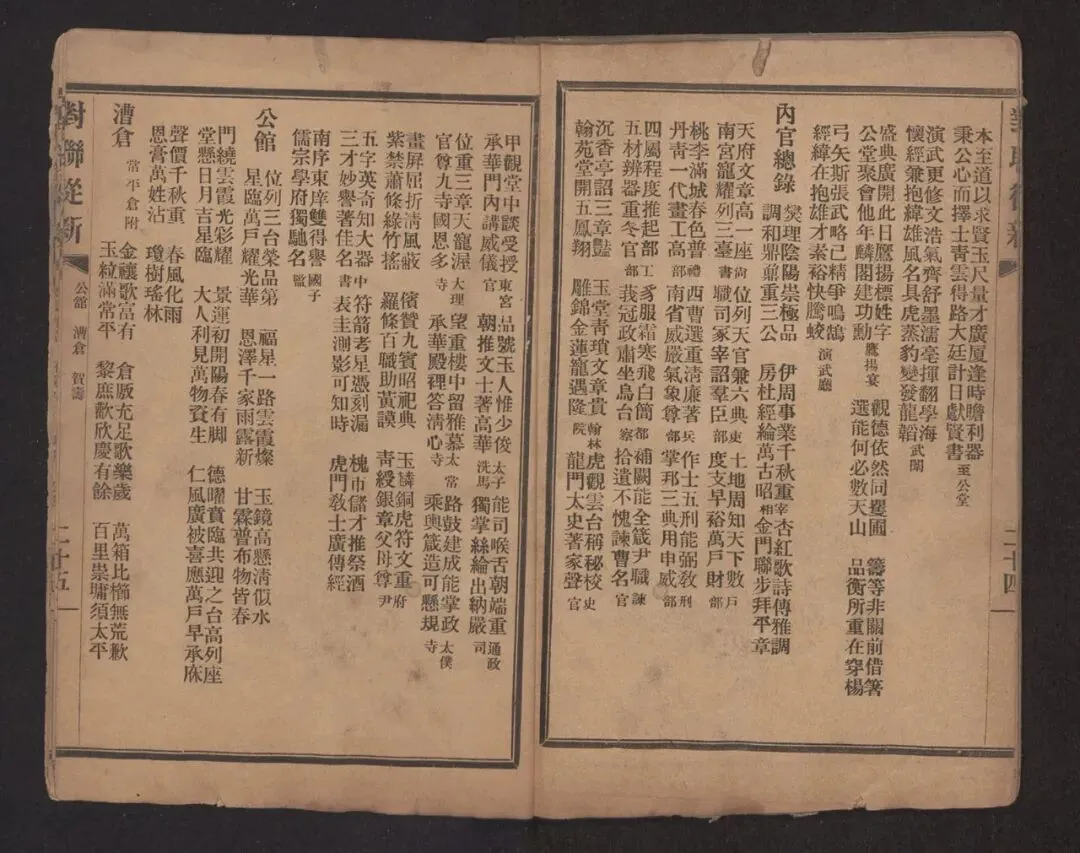 對聯從新
二十四
本至道以求賢玉尺量才廣厦逢時瞻利器
秉公心而擇士靑雲得路大廷計日獻賢書 至公堂
演武更修文浩氣齊舒墨濡毫揮翻學海
懷經兼抱緯雄風名具虎蒸豹變發龍韜 武闈
盛典廣開此日鷹揚標姓字
公堂聚會他年麟閣建功勳 鷹揚宴
觀德依然同矍圃
選能何必數天山
籌等非關前借箸
品衡所重在穿楊
弓矢斯張武略已精爭鳴鵠
經緯在抱雄才素裕快騰蛟 演武廳
內官總錄
爕理陰陽崇極品
調和鼎鼐重三公
伊周事業千秋重
房杜經綸萬古昭 宰相
杏紅歌詩傳雅調
金門聯步拜平章
天府文章高一座
南宮寵耀列三臺 尙書
位列天官兼六典
職司冢宰詔羣臣 吏部
土地周知天下數
度支早裕萬戶財 戶部
桃李滿城春色普
丹靑一代畫工高 禮部
西曹選重淸廉著
南省威嚴氣象尊 兵部
作士五刑能弼敎
掌邦三典用申威 刑部
四屬程度推起部
五材辨器重冬官 工部
豸服霜寒飛白簡
莪冠政肅坐烏台 都察
補闕能全箴尹職
拾遺不愧諫曹名 諫官
沉香亭詔三章豔
翰苑堂開五鳳翔
玉堂靑瑣文章貴
雕錦金蓮寵遇隆 翰林院
虎觀雲台稱秘校
龍門太史著家聲 史官
甲觀堂中談受授
承華門內講威儀 東宮官
品號玉人惟少俊
朝推文士著高華 太子洗馬
能司喉舌朝端重
獨掌絲綸出納嚴 通政司
位重三章天寵渥
官尊九寺國恩多 大理寺
望重樓中留雅慕
承華殿裡答淸心 太常寺
路鼓建成能掌政
乘輿箴造可懸規 太僕寺
畫屏屈折淸風蔽
紫禁蕭條綠竹搖
儐贊九賓昭祀典
羅條百職助黃謨
玉麟銅虎符文重
靑綬銀章父母尊 府尹
五字英奇知大器
三才妙譽著佳名 中書
符箭考星憑刻漏
表圭測影可知時
槐市儲才推祭酒
虎門敎士廣傳經
南序東庠雙得譽
儒宗學府獨馳名 國子監
公館
位列三台榮品第
星臨萬戶耀光華
福星一路雲霞燦
恩澤千家雨露新
玉鏡高懸淸似水
甘霖普布物皆春
門繞雲霞光彩耀
堂懸日月吉星臨
景運初開陽春有脚
大人利見萬物資生
德曜賁臨共迎之台高列座
仁風廣被喜應萬戶早承庥
聲價千秋重
恩膏萬姓沾
春風化雨
瓊樹瑤林
漕倉 常平倉附
金禳歌富有
玉粒滿常平
倉廒充足歌樂歲
黎庶歡欣慶有餘
萬箱比櫛無荒歉
百里崇墉須太平
對聯從新
公館 漕倉 賀壽
二十五